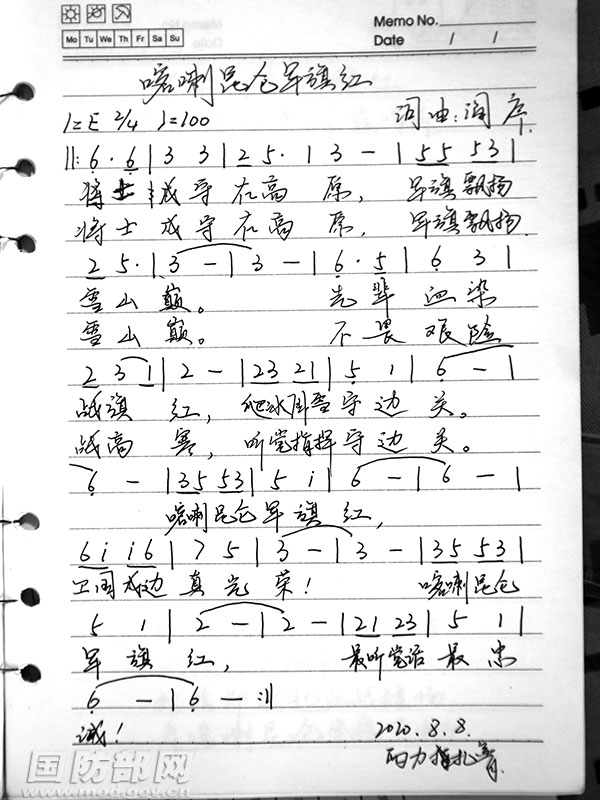 Memo No.
Mo Tu We Th Fr Sa Su
Date / /
喀喇昆仑军旗红
1=E 2/4 ♩=100 词曲:闻序
||: 6· 6 | 3 3 | 2 5· | 3 - | 55 53 |
将士戍守在高原, 军旗飘扬
将士戍守在高原, 军旗飘扬
2 5· | 3 - | 3 - | 6· 5 | 6 3 |
雪山巅。 先辈血染
雪山巅。 不畏艰险
2 3 1 | 2 - | 23 21 | 5 1 | 6 - |
战旗红, 爬冰卧雪守边关。
战高寒, 听党指挥守边关。
6 - | 35 53 | 5 i | 6 - | 6 - |
喀喇昆仑军旗红,
6i i6 | 7 5 | 3 - | 3 - | 35 53 |
卫国戍边真光荣! 喀喇昆仑
5 1 | 2 - | 2 - | 21 23 | 5 1 |
军旗红, 最听党话最忠
6 - | 6 - :||
诚! 2020.8.8.
国防部网
www.mod.gov.cn